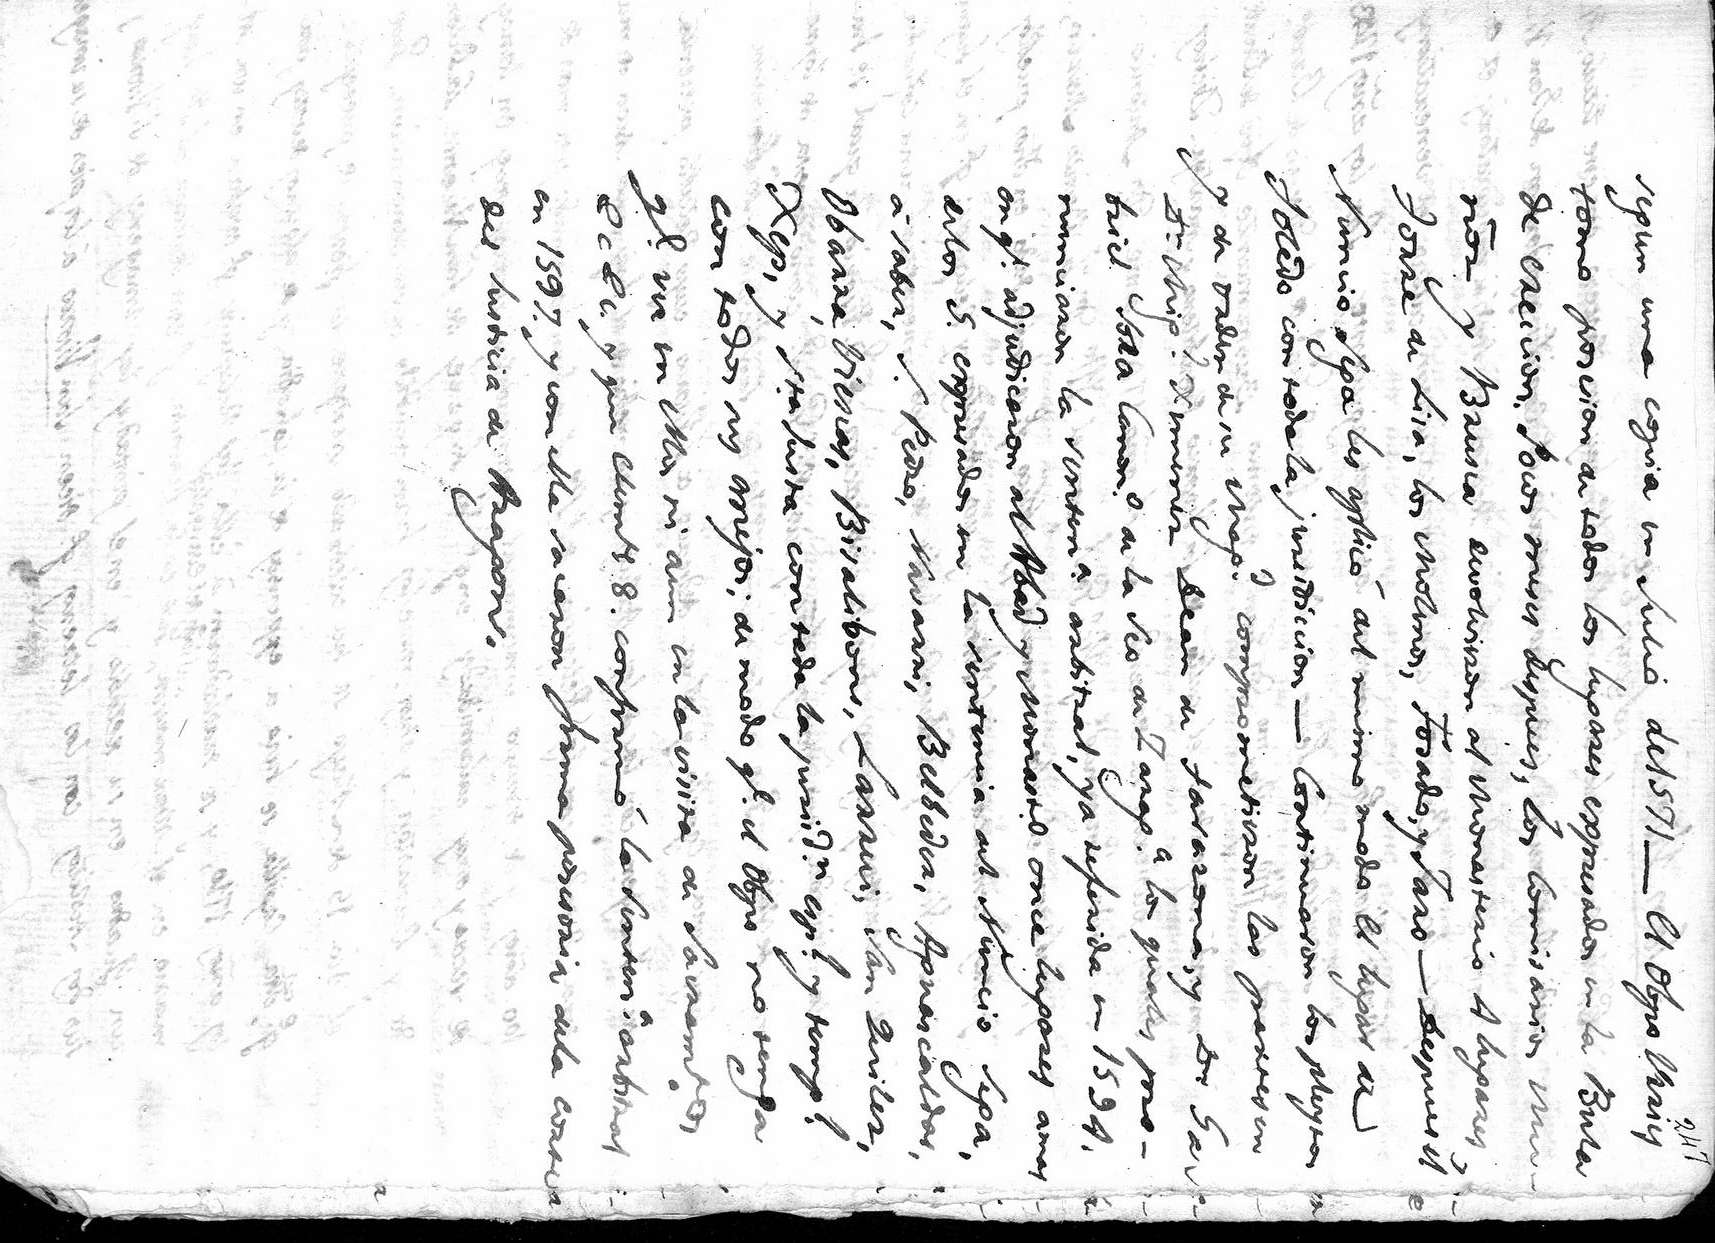 247
segun una copia en Julio del 571 — El Obpo Unxis
tomo posesion de todos los lugares expresados en la Bula
de ereccion. Pocos meses despues, los Comisarios Mu-
ñoz y Brusca devolvieron al Monasterio 4 lugares,
Torre de Lisa, los Molinos, Fosado, y Faro — despues el
Nuncio Sega les aplicó del mismo modo el lugar de
Toledo con toda la jurisdiccion — Continuaron los pleytos
y de orden de su Magd. comprometieron las partes en
Dn. Mig.l Ximenez Dean de Tarazona, y Dr. Ga-
briel Sora Canon.o de la Seo de Zarag.a los quales pro-
nunciaron la senten.a arbitral, ya referida en 1594,
en q.e adjudicaron al Abad y Monast.o once lugares a mas
de los 5. expresados en la sentencia del Nuncio Sega,
a saber, S. Pedro, Navarri, Belbeder, Aguascaldas,
Obarra, Biescas, Bisalibons, Larrui, San Quilez,
Xep, y Sta Justa con toda la jurisd.n esp.l y temp.l
con todos sus anejos; de modo q.e el Obpo no tenga
q.e ver en ellos, ni aun en la visita de Sacramtos
&c &c. y que Clemte 8. confirmó la Senten.a arbitral
en 1597. y con ella sacaron firma posesoria dela corte
del Justicia de Aragon.